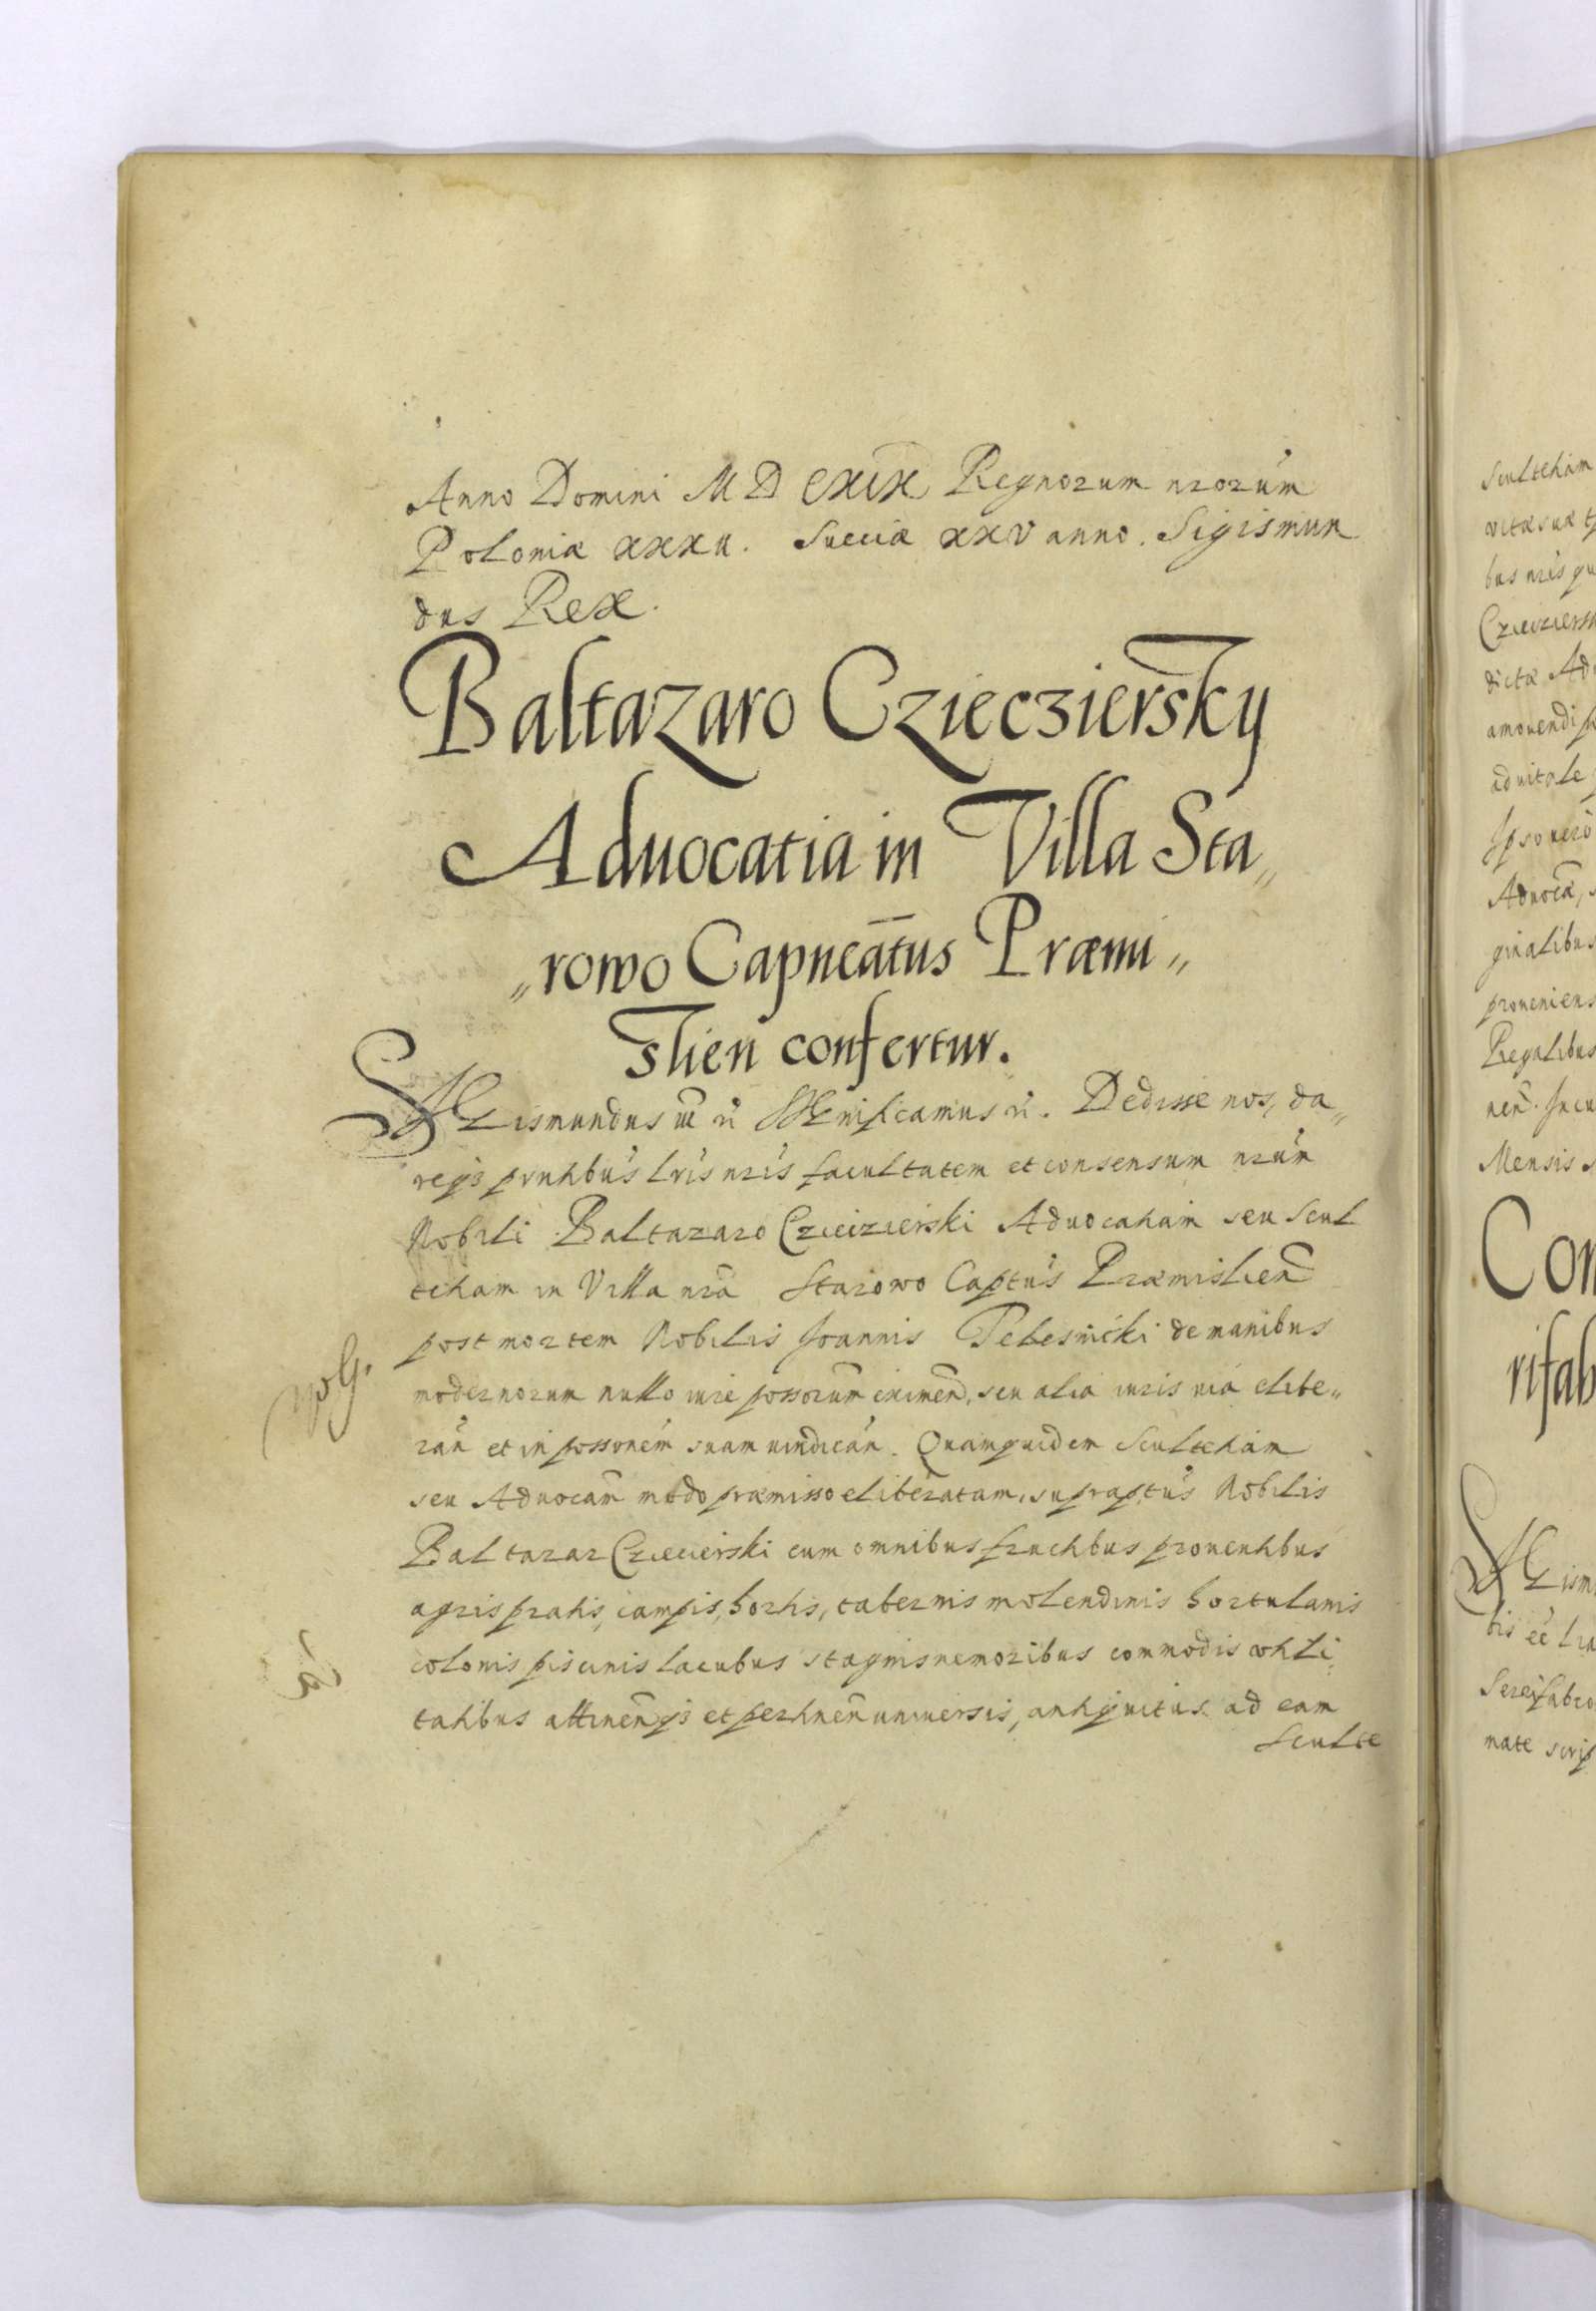 Anno Domini MDCXIX Regnorum nrorum
Poloniæ XXXII. Sueciæ XXV anno. Sigismun
dus Rex.
Baltazaro Czieczierski
Aduocatia in Villa Sta„
„rowo Capneatus Præmi„
slien confertur.
Sigismundus
Significamus
Dedisse nos, da„
reqз prntibus lris nris facultatem et consensum nrum
Nobili Baltazaro Czieczierski Aduocatiam seu Scul
tetiam in Villa nra Starowo Captus Præmislien
post mortem Nobilis Joannis Pelesnicki de manibus
modernorum nullo iure possorum eximen, seu alia iuris uia elibe„
ran et in possonem suam uindican. Quamquidem Scultetiam
seu Aduocam modo præmisso eliberatam, supraptus Nobilis
Baltazar Czieczierski cum omnibus fructibus prouentibus
agris pratis, campis, hortis, tabernis molendinis hortulanis
colonis piscinis lacubus stagnis nemoribus commodis utili
tatibus attinenцз et pertinen uniuersis, antiquitus ad eam
Sculte
Scultetiam
vitæ suæ
bus nris
Czieczierski
dictæ
amouendi
aduitale
Ipso uero
Aduocæ,
ginalibus
proueniens
Regalibus
nen.
Mensis
Con